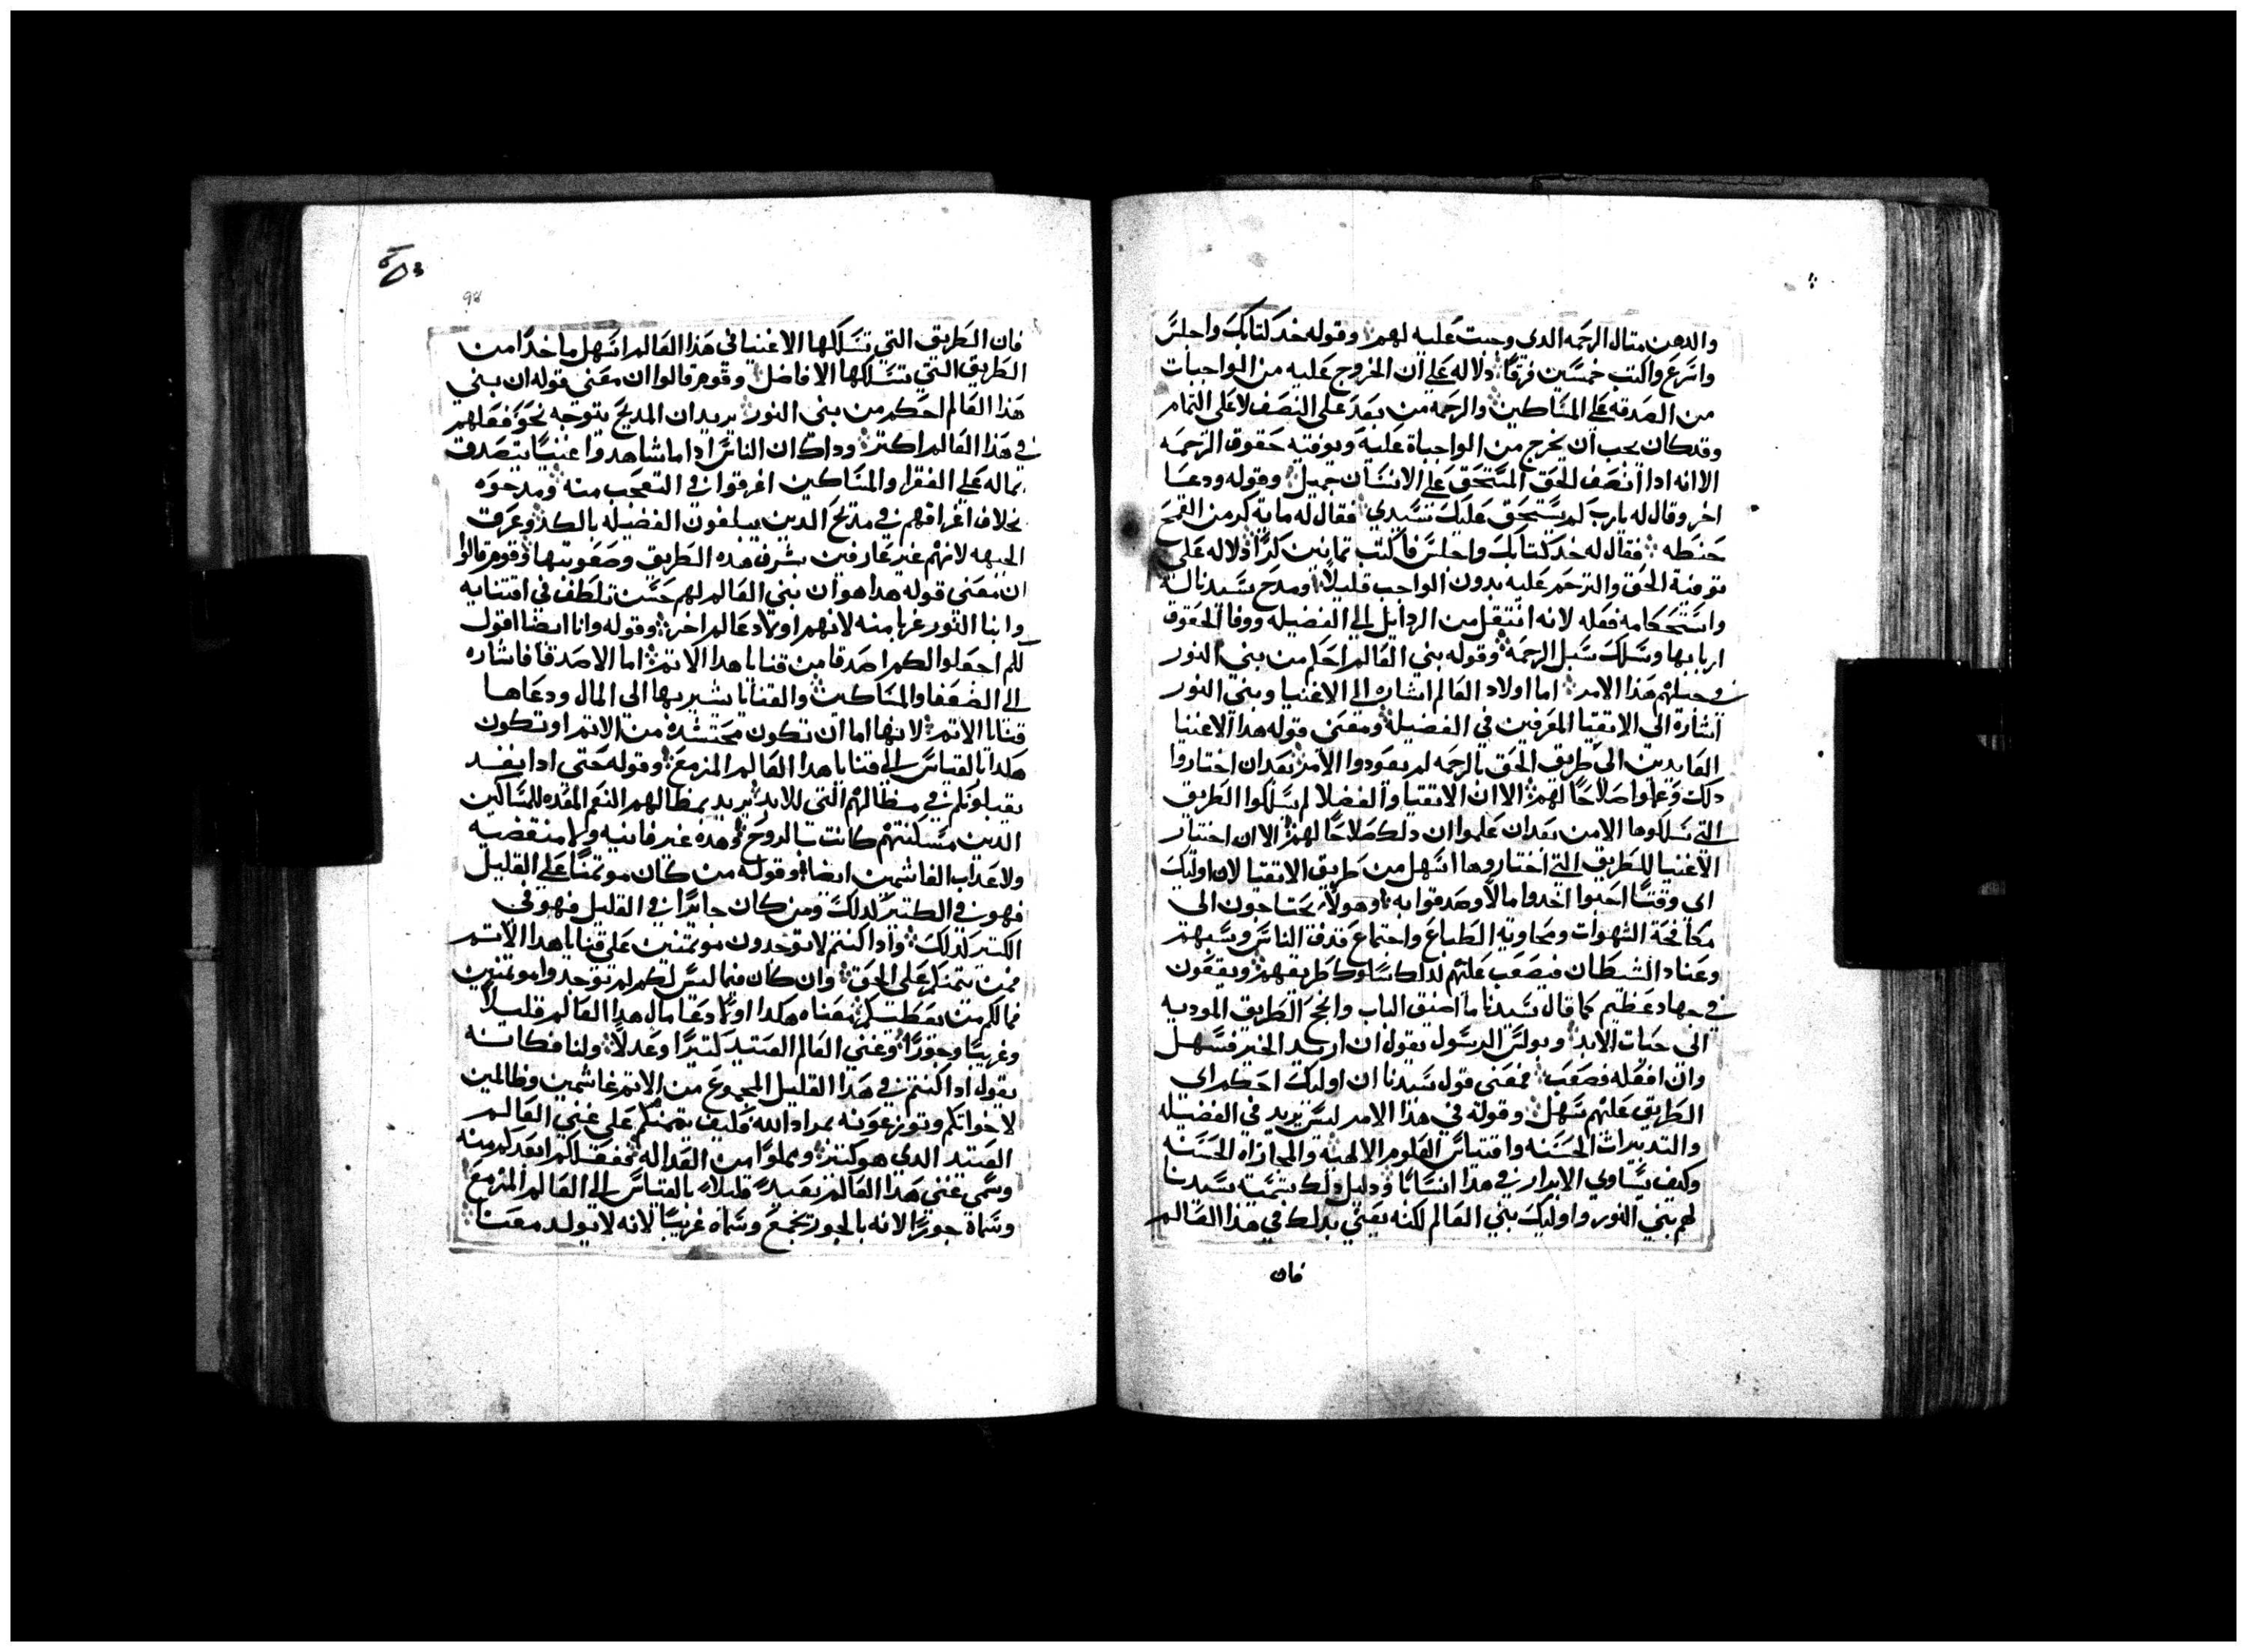 والدهن متال الرحمه الدى وجبت عليه لهم وقوله خد كتابك واجلس
واسرع واكتب خمسين فرقًا دلاله على ان الخروج عليه من الواجبات
من الصدقه على المساكين والرحمه من بعد على النصف لا على التمام
وقد كان يجب ان يخرج من الواجباة عليه وبوفته حقوق الرحمه
الا انه ادا انصف الحق المستحق على الانسان جميل وقوله ودعا
اخر وقال له يا رب لم يستحق عليك سيدي فقال له مايه كر من القمح
حنطه فقال له خد كتابك واجلس فاكتب تمانين كرًا دلاله على
توفية الحق والترحم عليه بدون الواجب قليلًا ومدح سيدنا له
واستحكامه فعله لانه انتقل من الردايل الى الفضيله ووفا الحقوق
اربابها وسلك سبل الرحمه وقوله بني العالم احكم من بني النور
في جيلهم هذا الامر اما اولاد العالم اشاره الى الاغنيا وبني النور
اشاره الى الاتقيا المعرفين في الفضيله ومعنى قوله هدا الاغنيا
العايدين الى طريق الحق بالرحمه لم يعودوا الامر بعد ان اختاروا
دلك وعلموا صلاحًا لهم الا ان الاتقيا والفضلا لم يسلكوا الطريق
التي سلكوها الا من بعد ان علموا ان دلك صلاحًا لهم الا ان اختيار
الاغنيا للطريق التي اختاروها اسهل من طريق الاتقيا لان اوليك
اى وقتًا احبوا اخدوا مالًا وصدقوا به وهولاء يحتاجون الى
مكافحة الشهوات ومحاوبه الطباع واحتماع قدف الناس وسبهم
وعناد الشيطان فيصعب عليهم لدلك سلوك طريقهم ويقعون
في جهاد عظيم كما قال سيدنا ما اضيق الباب وانجح الطريق الموديه
الى حيات الابد وبولس الرسول يقول ان اريد الخير فسهل
وان افعله فصعب فمعنى قول سيدنا ان اوليك احكم اى
الطريق عليهم سهل وقوله في هذا الامر ليس يريد في الفضيله
والتدبيرات الحسنه واقتباس العلوم الالهيه والمجازاه الحسنه
وكيف يساوي الابرار في هدا انسانًا ودليل دلك تسمية سيدنا
لهم بني النور واوليك بني العالم لكنه يعني بدلك في هذا العالم
فان
فان الطريق التي تسلكها الاغنيا في هذا العالم اسهل ماخدًا من
الطريق التي تسلكها الافاضل وقوم قالوا ان معنى قوله ان بني
هذا العالم احكم من بني النور يريد ان المديح يتوجه نحو فعلهم
في هذا العالم اكتر وداك ان الناس ادا ما شاهدوا غنيًا يتصدق
بماله على الفقرا والمساكين اغرقوا في التعجب منه ومدحوه
بخلاف اغراقهم في مديح الدين يبلغون الفضيله بالكد وعرق
الجبهه لانهم غير عارفين بشرف هده الطريق وصعوبتها وقوم قالوا
ان معنى قوله هدا هو ان بني العالم لهم حسن تلطف في اقتنايه
وابنا النور غربا منه لانهم اولاد عالم اخر وقوله وانا ايضا اقول
لكم اجعلوا لكم اصدقا من قنايا هدا الاتم اما الاصدقا فاشاره
الى الضعفا والمساكين والقنايا يشير بها الى المال ودعاها
قنايا الاتم لانها اما ان تكون محتشده من الاتم او تكون
هكدا بالقياس الى قنايا هدا العالم المزمع وقوله حتي ادا نفد
يقبلونكم في مظالهم التي للابد يريد بمظالهم النعم المعده للمساكين
الدين مسكنتهم كانت بالروح وهده غير فانيه ولا منقضيه
ولا عداب الغاشمين ايضا وقوله من كان موتمنًا على القليل
فهو في الكتير كدلك ومن كان جايرًا في القليل فهو في
الكتير كدلك وادا كنتم لا توجدون موتمنين على قنايا هدا الاتم
فمن يتمنكم على الحق وان كان فيما ليس لكم لم توجدوا موتمنين
فما لكم من يعطيكم معناه هكدا اولًا دعا مال هدا العالم قليلًا
وغريبًا وجورًا وغنى العالم العتيد كتيرًا وعدلًا ولنا فكانه
يقول ادا كنتم في هدا القليل المجموع من الاتم غاشمين وظالمين
لاخوانكم وتوزعونه بمراد الله فكيف يتمنكم على غنى العالم
العتيد الدي هو كتير ومملوًا من العداله فحفظ لكم ابعدكم منه
وسمى غنى هذا العالم بعيدًا قليلًا بالقياس الى العالم المزمع
وسماه جورًا لانه بالجور يجمع وسماه غريبًا لانه لا يولد معنا